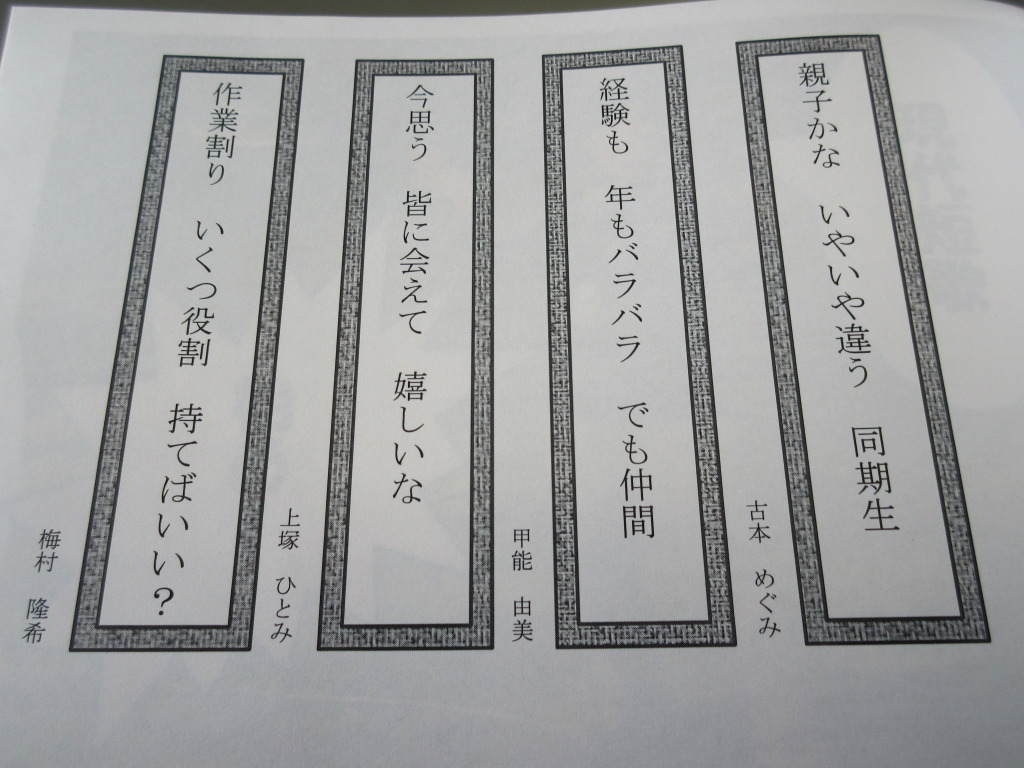 親子かな　いやいや違う　同期生
古本　めぐみ
経験も　年もバラバラ　でも仲間
甲能　由美
今思う　皆に会えて　嬉しいな
上塚　ひとみ
作業割り　いくつ役割　持てばいい？
梅村　隆希